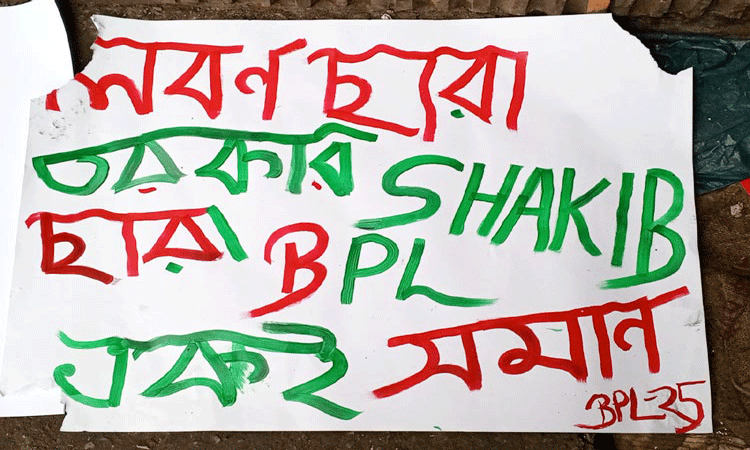 লবর্ণ ছারা
তরকারি SHAKIB
ছারা BPL
একই সমান
BPL-25